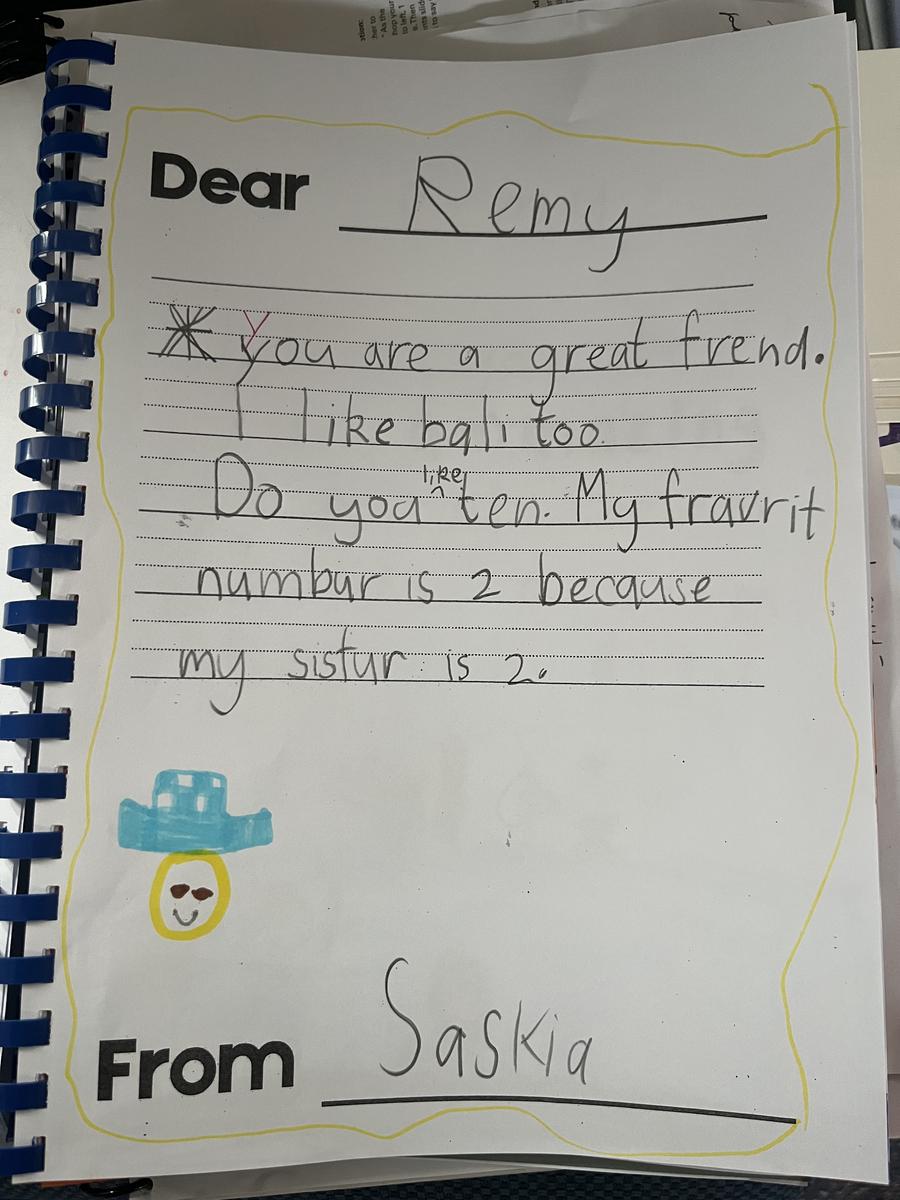 Dear Remy
You are a great frend.
I like bali too.
Do you like ten. My fravrit
numbur is 2 because
my sistur is 2.
From Saskia